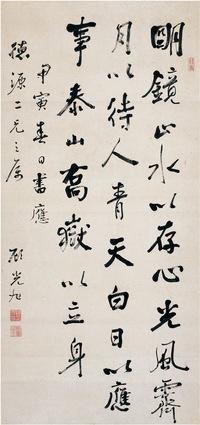 明鏡止水以存心光風霽
月以待人青天白日以應
事泰山喬嶽以立身
甲寅春日書應
德源二兄之屬
顧光旭